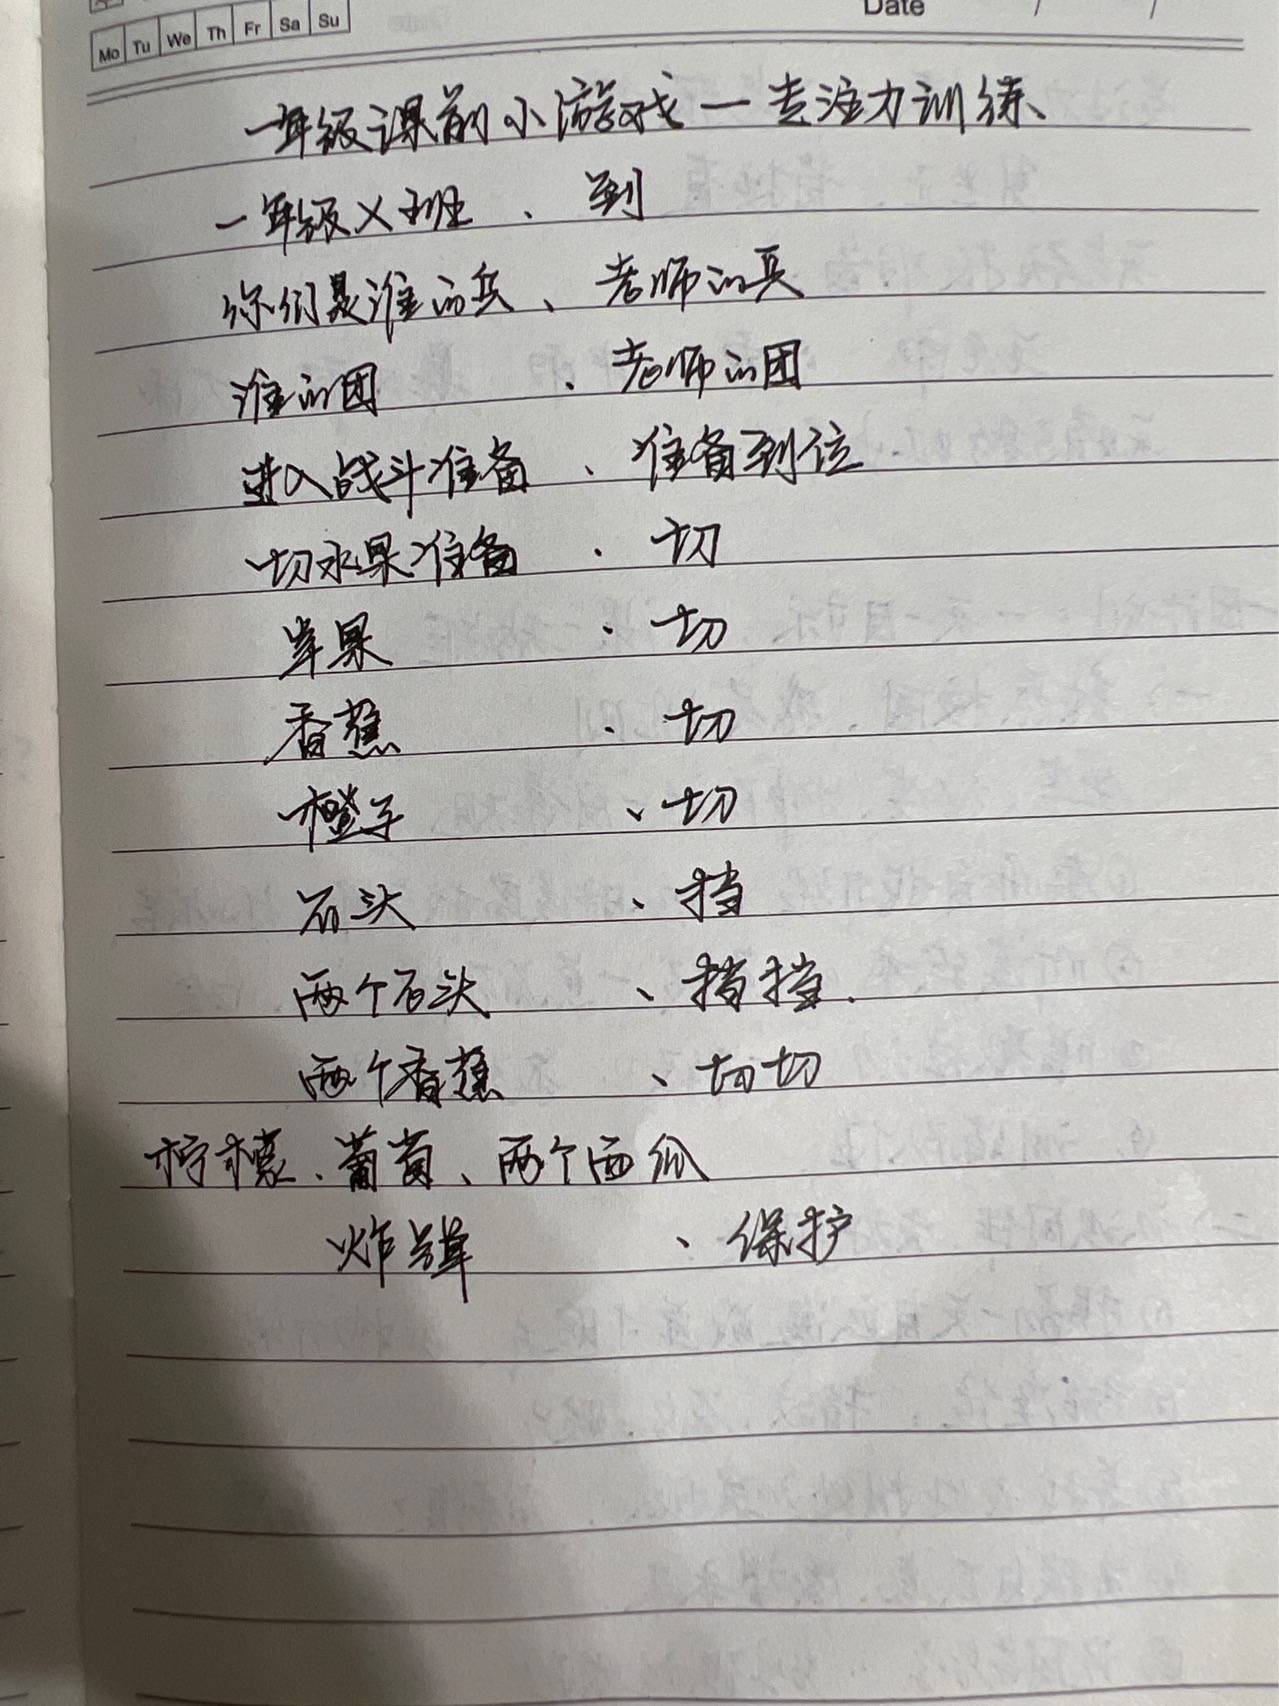 Mo Tu We Th Fr Sa Su
Date / /
一年级课前小游戏一专注力训练
一年级X班、到
你们是谁的兵、老师的兵
谁的团、老师的团
进入战斗准备、准备到位
切水果准备.切
苹果.切
香蕉、切
橙子、切
石头、挡
两个石头、挡挡.
两个香蕉、切切
柠檬、葡萄、两个西瓜
炸弹、保护